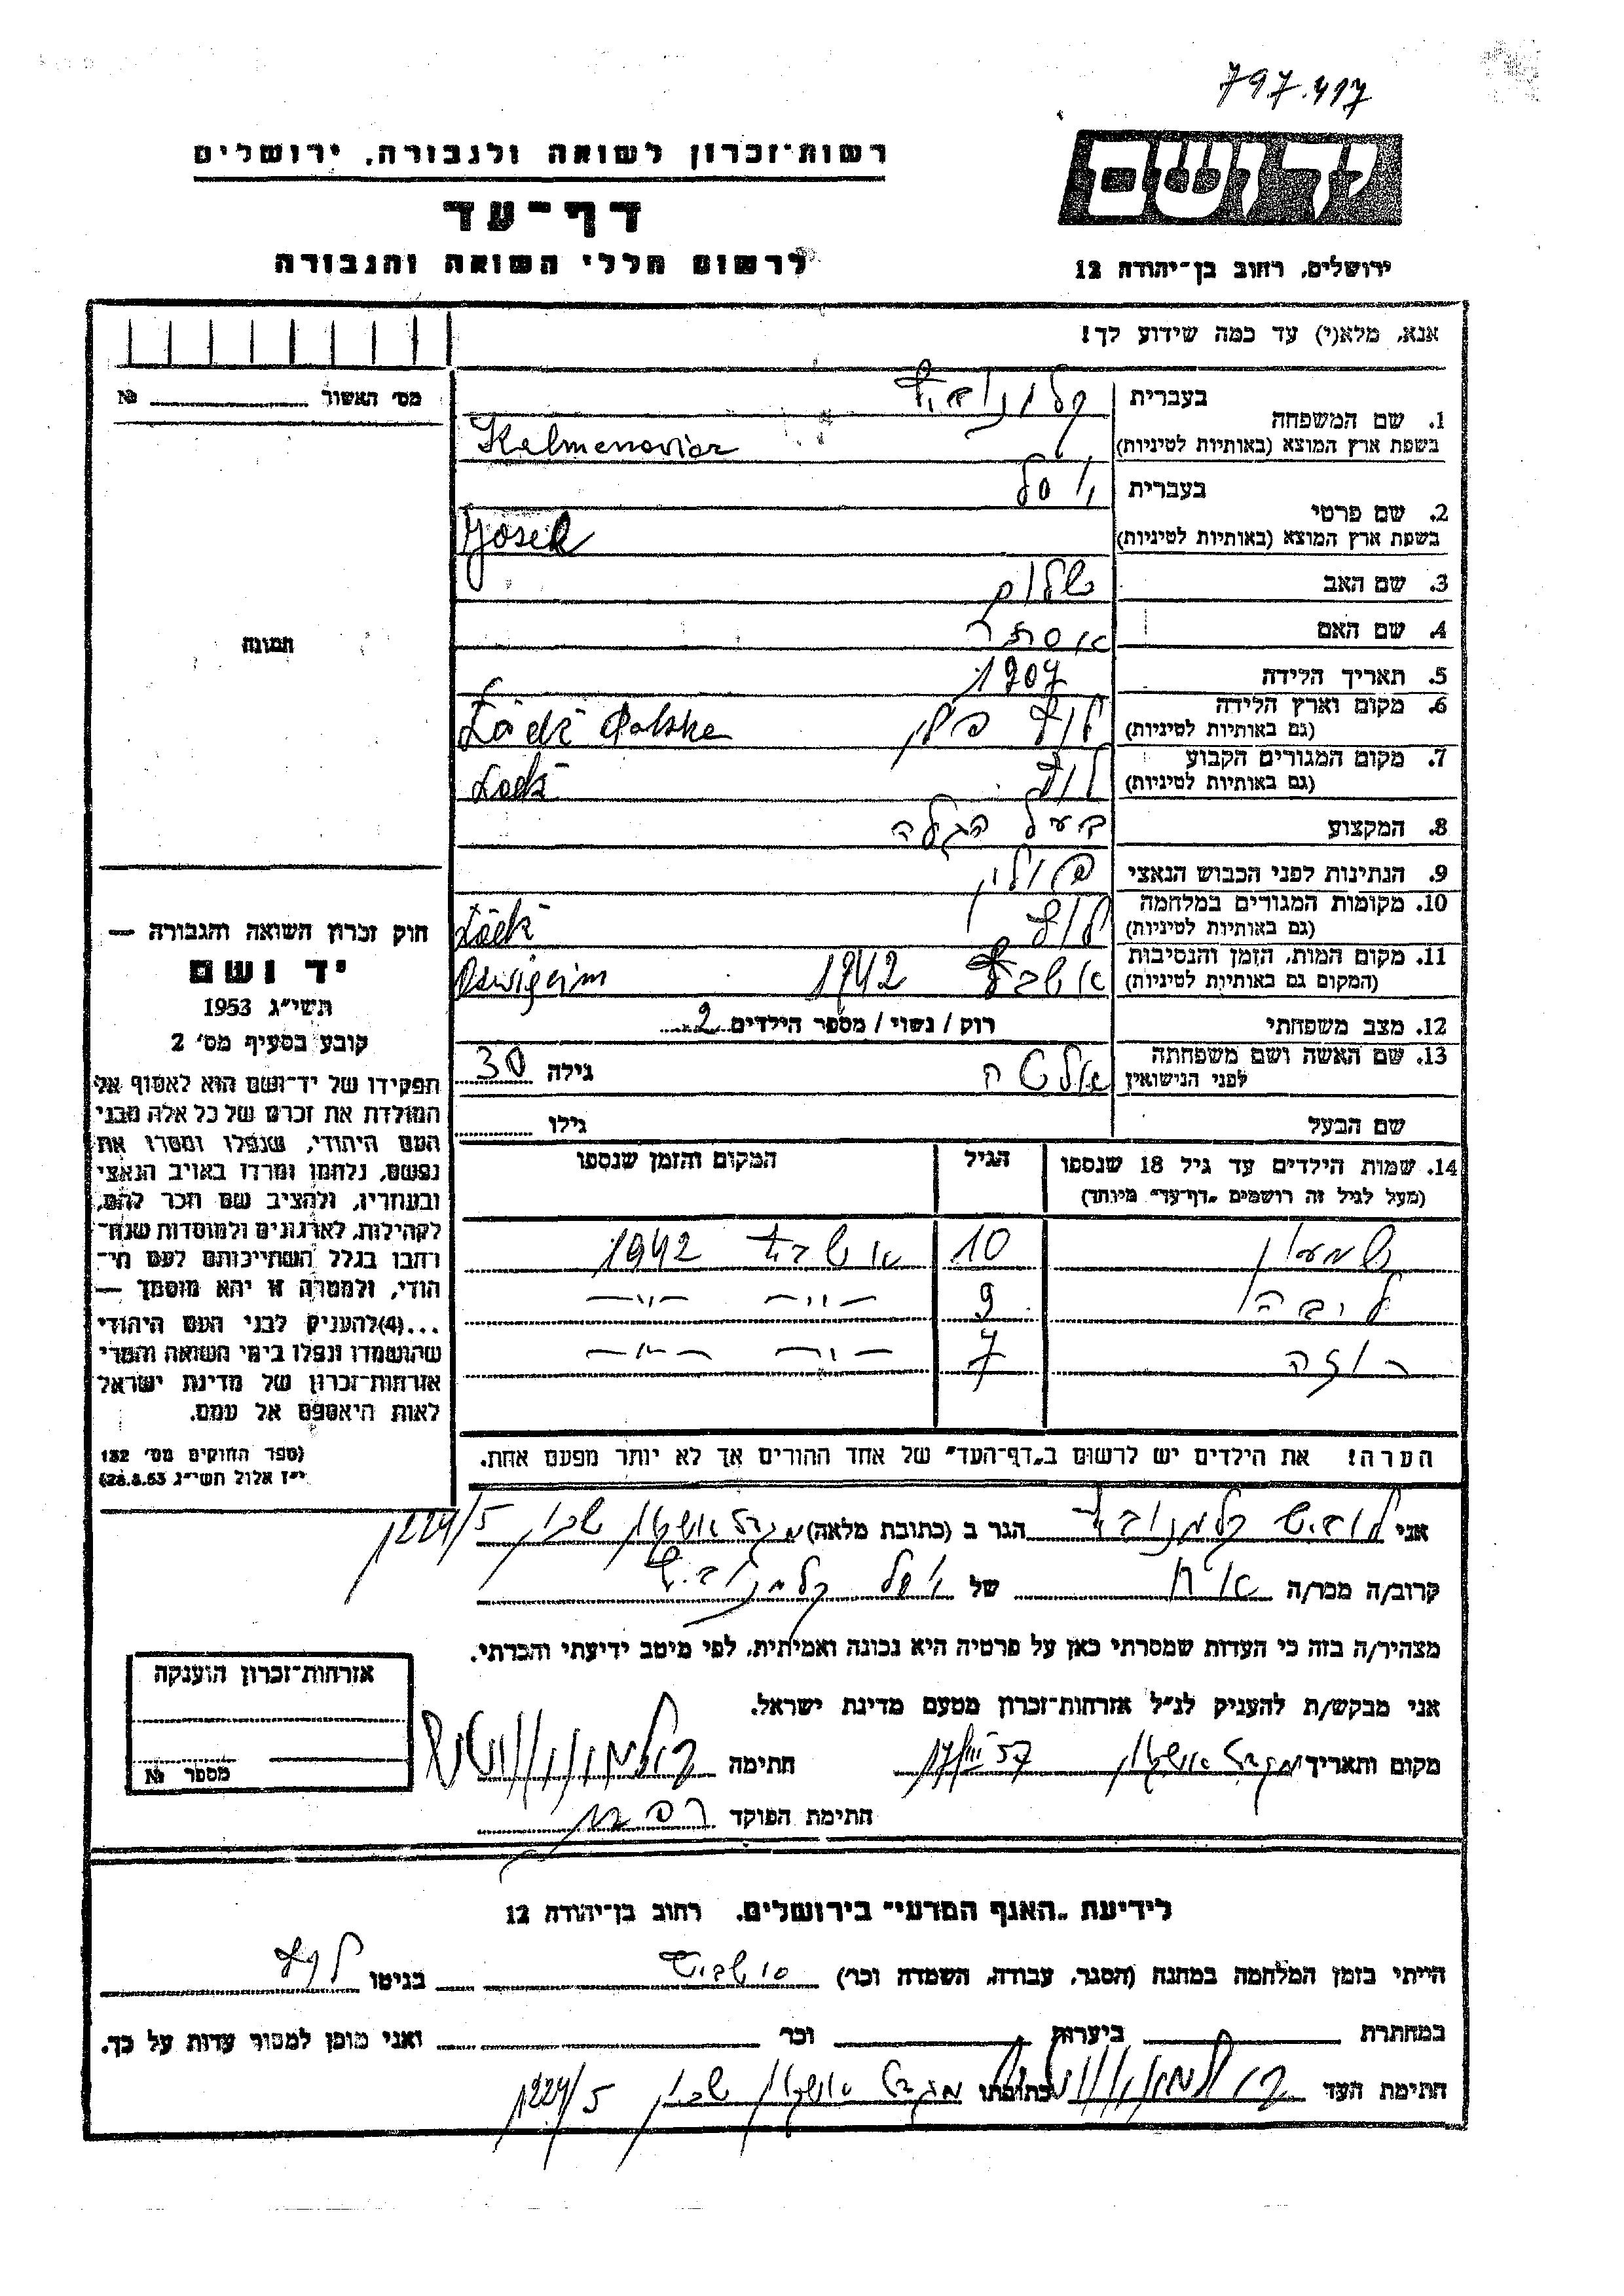 797.417
רשות־זכרון לשואה ולגבורה, ירושלים
יד ושם
דף־עד
לרשום חללי השואה והגבורה
ירושלים, רחוב בן־יהודה 12
אנא, מלא(י) עד כמה שידוע לך!
מס׳ האשור № 
1. שם המשפחה
בעברית קלמנוביץ
בשפת ארץ המוצא (באותיות לטיניות) Kelmenovicz
2. שם פרטי
בעברית יוסל
בשפת ארץ המוצא (באותיות לטיניות) Josek
3. שם האב שלום
4. שם האם אסתר
תמונה
5. תאריך הלידה 1907
6. מקום וארץ הלידה לודז פולין
(גם באותיות לטיניות) Łódź Polska
7. מקום המגורים הקבוע לודז
(גם באותיות לטיניות) Łodź
8. המקצוע בעל הגלה
9. הנתינות לפני הכבוש הנאצי פולין
10. מקומות המגורים במלחמה לודז
(גם באותיות לטיניות) Łódź
11. מקום המות, הזמן והנסיבות 1942
(המקום גם באותיות לטיניות)
12. מצב משפחתי רוק / נשוי / מספר הילדים 2
13. שם האשה ושם משפחתה
לפני הנישואין גילה 30
שם הבעל גילו
14. שמות הילדים עד גיל 18 שנספו הגיל המקום והזמן שנספו
(מעל לגיל זה רושמים „דף־עד״ מיוחד)
שמעון 10 אושביץ 1942
ליבה 9 — ״ — — ״ —
רוזה 7 — ״ — — ״ —
הערה! את הילדים יש לרשום ב„דף־העד״ של אחד ההורים אך לא יותר מפעם אחת.
חוק זכרון השואה והגבורה —
יד ושם
תשי״ג 1953
קובע בסעיף מס׳ 2
תפקידו של יד־ושם הוא לאסוף אל
המולדת את זכרם של כל אלה מבני
העם היהודי, שנפלו ומסרו את
נפשם, נלחמו ומרדו באויב הנאצי
ובעוזריו, ולהציב שם וזכר להם,
לקהילות, לארגונים ולמוסדות שנח־
רבו בגלל השתייכותם לעם הי־
הודי, ולמטרה זו יהא מוסמך —
...(4)להעניק לבני העם היהודי
שהושמדו ונפלו בימי השואה והמרי
אזרחות־זכרון של מדינת ישראל
לאות היאספם אל עמם.
(ספר החוקים מס׳ 132
י״ז אלול תשי״ג 28.8.53)
אני קלמנוביץ הגר ב (כתובת מלאה) מגדל אשקלון שכון 224/5
קרוב/ה מכר/ה אח של יוסל קלמנוביץ
מצהיר/ה בזה כי העדות שמסרתי כאן על פרטיה היא נכונה ואמיתית, לפי מיטב ידיעתי והכרתי.
אני מבקש/ת להעניק לנ״ל אזרחות־זכרון מטעם מדינת ישראל.
מקום ותאריך מגדל אשקלון 17/III 57 חתימה
חתימת הפוקד
אזרחות־זכרון הוענקה
מספר №
לידיעת „האגף המדעי״ בירושלים, רחוב בן־יהודה 12
הייתי בזמן המלחמה במחנה (הסגר, עבודה, השמדה וכר׳) בגיטו לודז
במחתרת ביערות וכר ואני מוכן למסור עדות על כך.
חתימת העד כתובתו מגדל אשקלון שכון 224/5